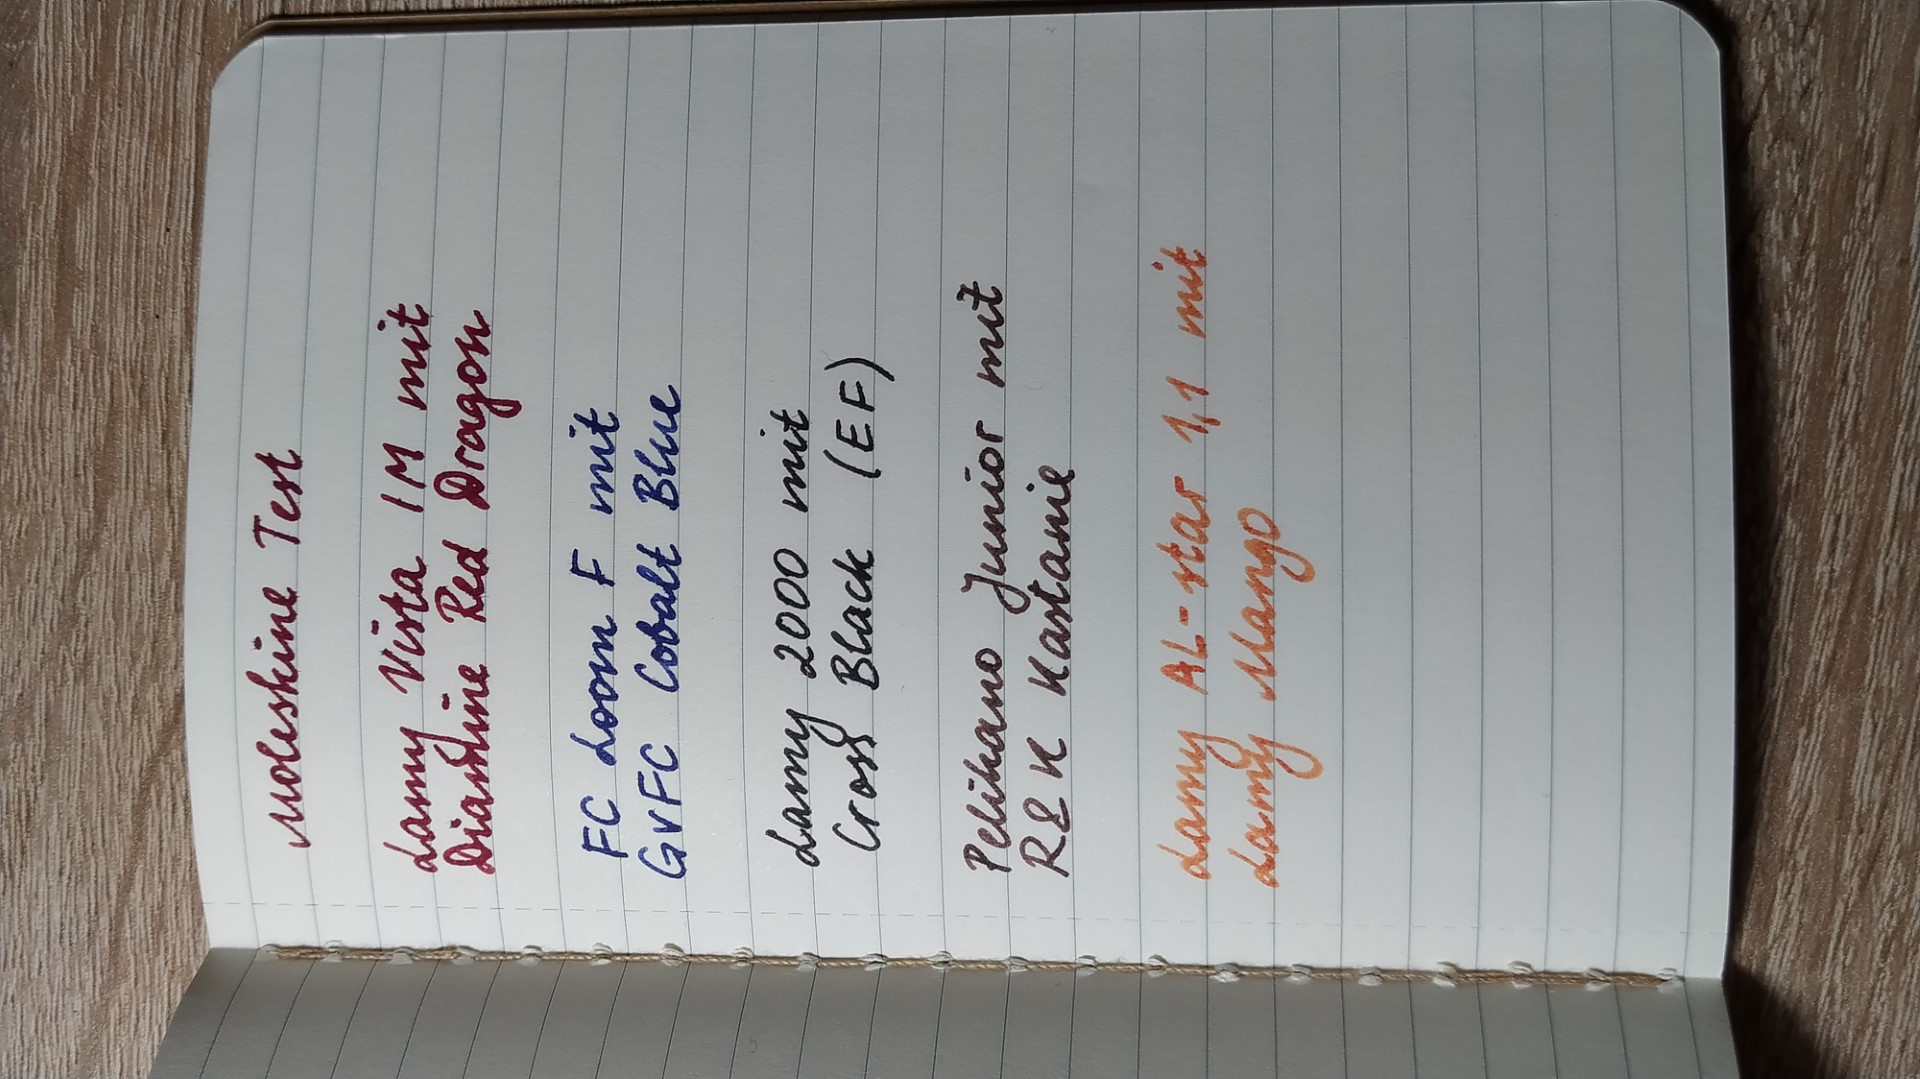 Moleskine Test
Lamy Vista 1M mit
Diamine Red Dragon
FC Loom F mit
GvFC Cobalt Blue
Lamy 2000 mit
Cross Black (EF)
Pelikano Junior mit
R&K Kastanie
Lamy AL-star 1,1 mit
Lamy Mango